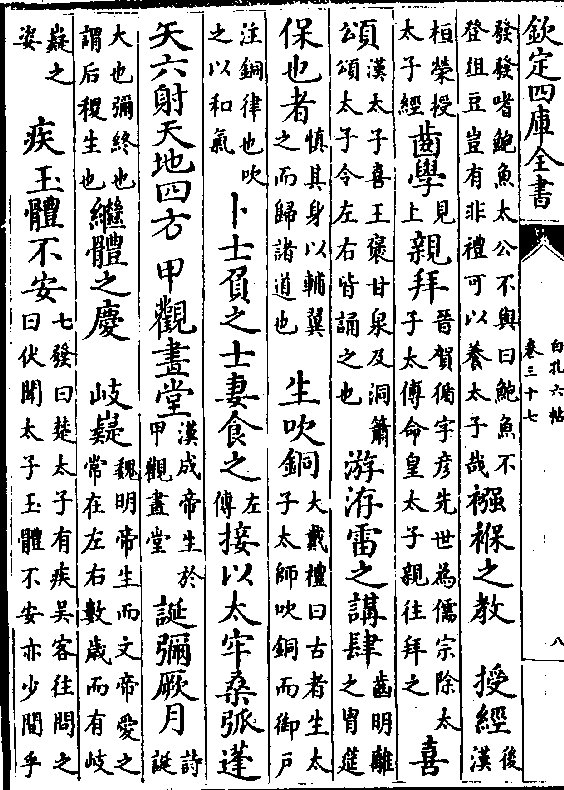 欽定四庫全書
白孔六帖
卷三十七
八
發發嗜鮑魚太公不與曰鮑魚不登俎豆豈有非禮可以養太子哉 襁褓之教 授經 後漢
桓榮授太子經 齒學 見上 親拜 晉賀循字彥先世為儒宗除太子太傅命皇太子親往拜之 喜
頌 漢太子喜王褒甘泉及洞簫頌太子令左右皆誦之也 游洊雷之講肆 齒明離之胄筵
保也者 慎其身以輔翼之而歸諸道也 生吹銅 大戴禮曰古者生太子太師吹銅而御戶
注銅律也吹之以和氣 卜士負之士妻食之 左傳 接以太牢桑弧蓬
矢六射天地四方 甲觀畫堂 漢成帝生於甲觀畫堂 誕彌厥月 詩誕
大也彌終也謂后稷生也 繼體之慶 岐嶷 魏明帝生而文帝愛之常在左右數歲而有岐
嶷之姿 疾玉體不安 七發曰楚太子有疾吳客往問之曰伏聞太子玉體不安亦少間乎